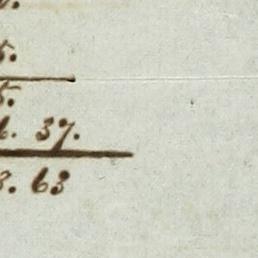 5.
5.
6. 37.
3. 63